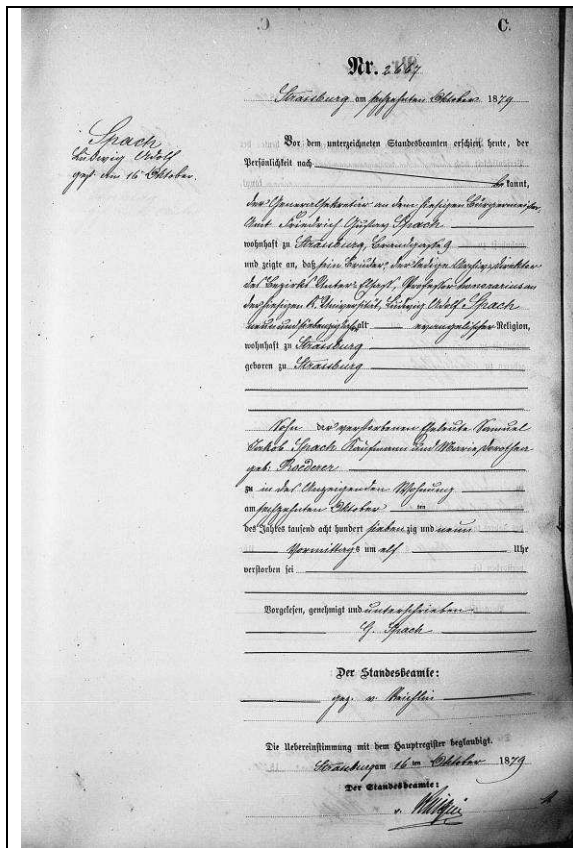 C.
Nr. 2667
Strassburg am sechzehnten Oktober 1879
Spach
Ludwig Adolf
gest. am 16 Oktober.
Vor dem unterzeichneten Standesbeamten erschien heute, der
Persönlichkeit nach
bekannt,
der Generalsekretär an dem hiesigen Bürgermeister-
Amt Friedrich Gustav Spach
wohnhaft zu Strassburg, Brandgasse 9
und zeigte an, daß sein Bruder, der ledige Archivdirektor
des Bezirks Unter-Elsaß, Professor honorarius an
der hiesigen K. Universität, Ludwig Adolf Spach
neunundsiebenzig Jahre alt evangelischer Religion,
wohnhaft zu Strassburg
geboren zu Strassburg
Sohn der verstorbenen Eheleute Samuel
Jakob Spach Kaufmann und Marie Dorothea
geb. Roederer
zu in des Anzeigenden Wohnung
am sechzehnten Oktober
des Jahres tausend acht hundert siebenzig und neun
Vormittags um elf Uhr
verstorben sei
Vorgelesen, genehmigt und unterschrieben
G. Spach
Der Standesbeamte:
gez. v. Reichlin
Die Uebereinstimmung mit dem Hauptregister beglaubigt.
Strassburg am 16 ten Oktober 1879
Der Standesbeamte:
v.